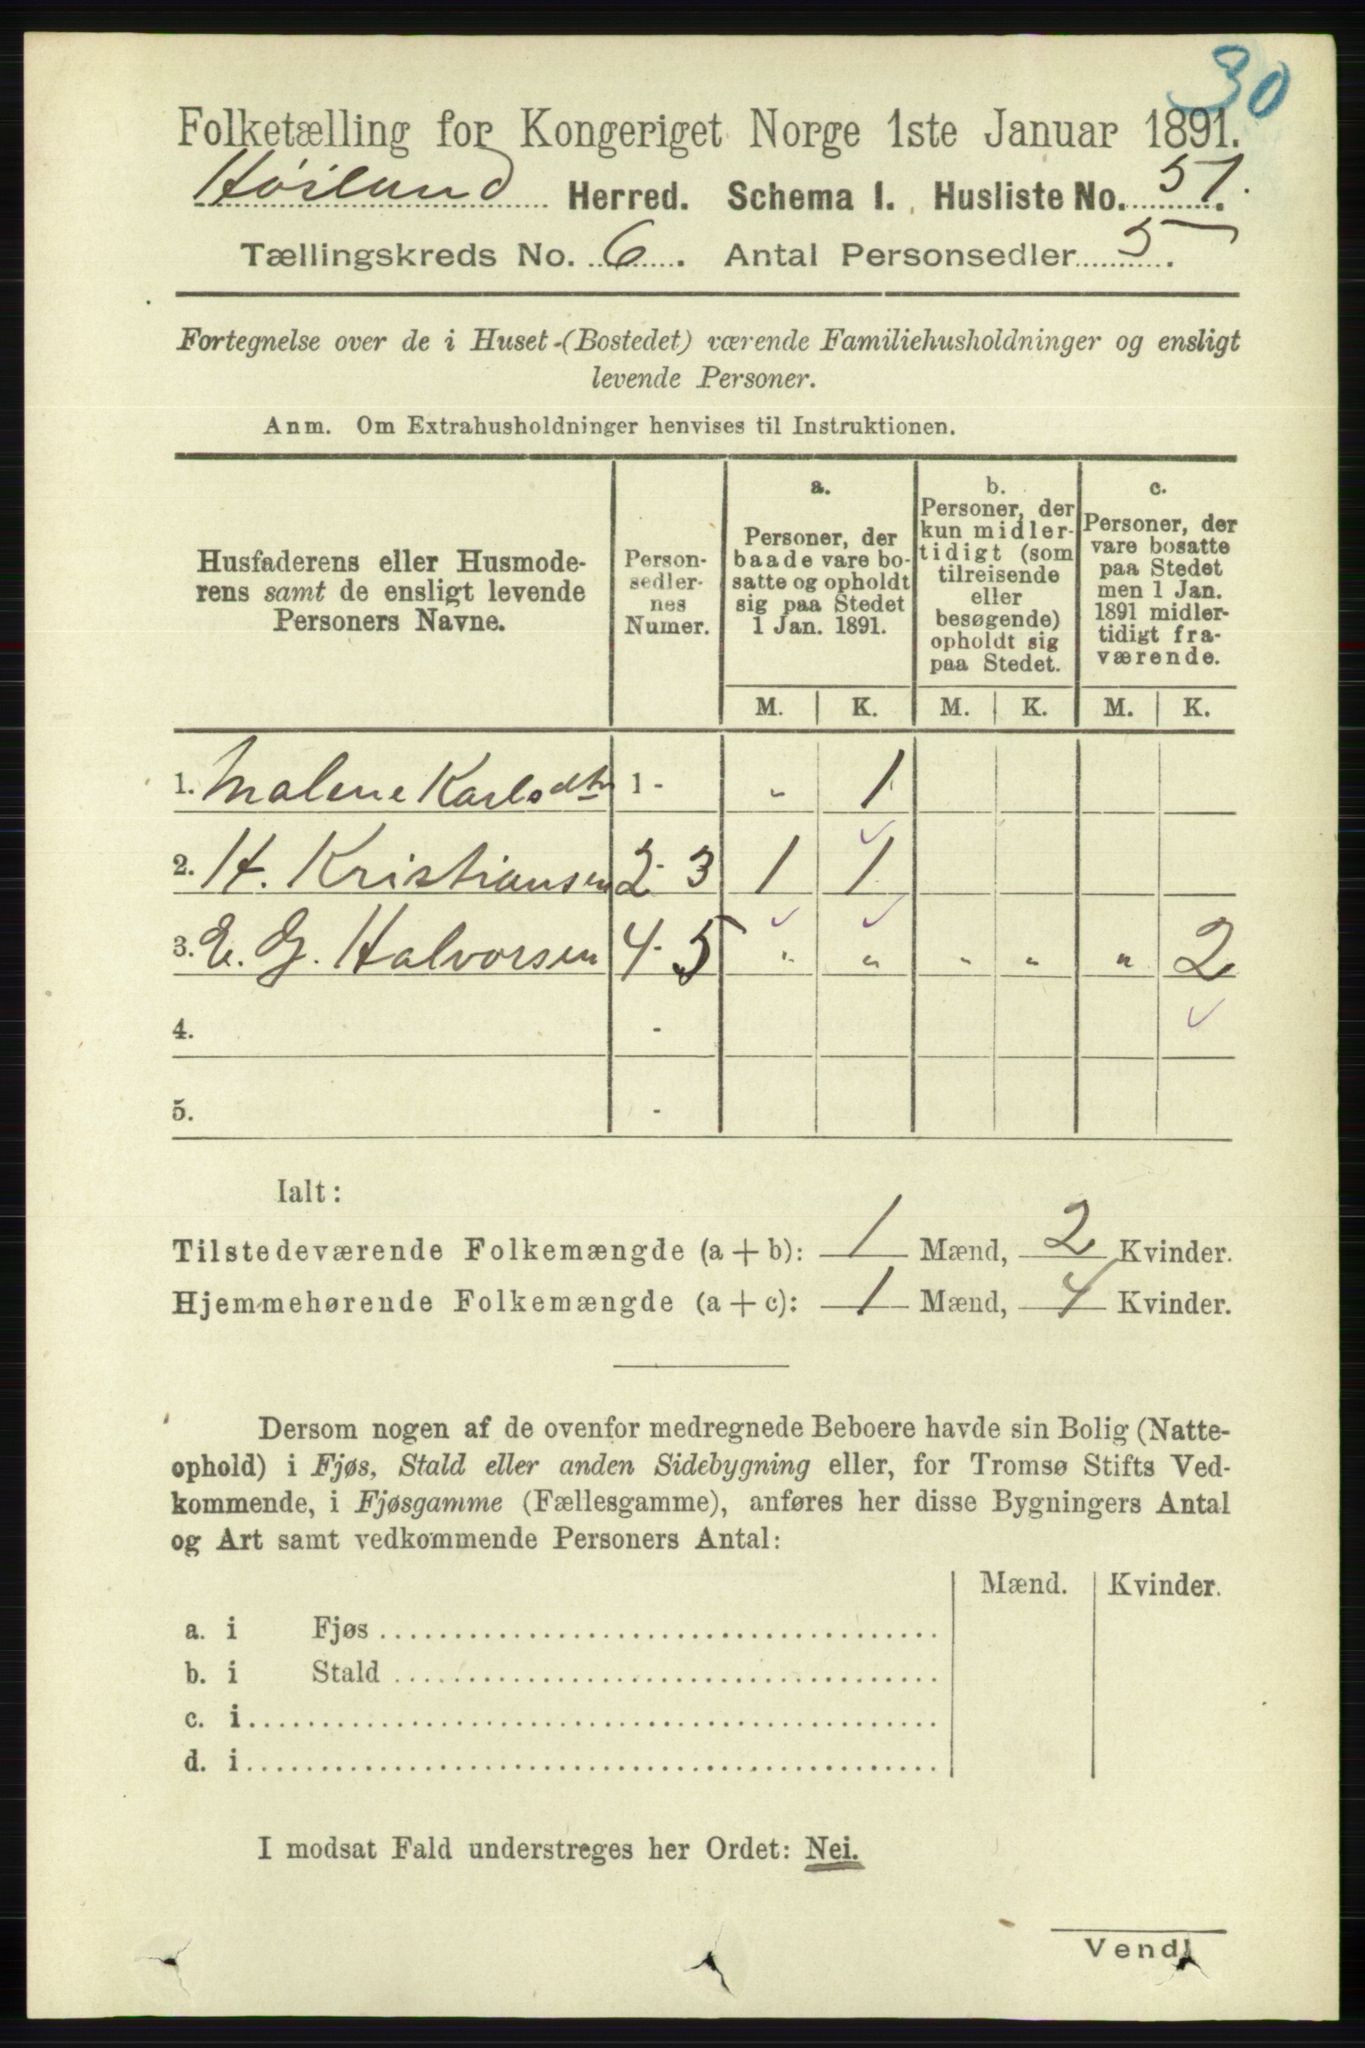 30
Folketælling for Kongeriget Norge 1ste Januar 1891.
Höiland Herred. Schema I. Husliste No. 51.
Tællingskreds No. 6. Antal Personsedler 5.
Fortegnelse over de i Huset (Bostedet) værende Familiehusholdninger og ensligt
levende Personer.
Anm. Om Extrahusholdninger henvises til Instruktionen.
Husfaderens eller Husmode-
rens samt de ensligt levende
Personers Navne.
Person-
sedler-
nes
Numer.
a.
Personer, der
baade vare bo-
satte og opholdt
sig paa Stedet
1 Jan. 1891.
b.
Personer, der
kun midler-
tidigt (som
tilreisende
eller
besøgende)
opholdt sig
paa Stedet.
c.
Personer, der
vare bosatte
paa Stedet
men 1 Jan.
1891 midler-
tidigt fra-
værende.
M. K. M. K. M. K.
1. Malene Karlsdtr 1 - „ 1
2. H. Kristiansen 2 - 3 1 1
3. E. G. Halvorsen 4 - 5 „ „ „ „ „ 2
4. -
5. -
Ialt:
Tilstedeværende Folkemængde (a + b): 1 Mænd, 2 Kvinder.
Hjemmehørende Folkemængde (a + c): 1 Mænd, 4 Kvinder.
Dersom nogen af de ovenfor medregnede Beboere havde sin Bolig (Natte-
ophold) i Fjøs, Stald eller anden Sidebygning eller, for Tromsø Stifts Ved-
kommende, i Fjøsgamme (Fællesgamme), anføres her disse Bygningers Antal
og Art samt vedkommende Personers Antal:
Mænd. Kvinder.
a. i Fjøs
b. i Stald
c. i
d. i
I modsat Fald understreges her Ordet: Nei.
Vend!